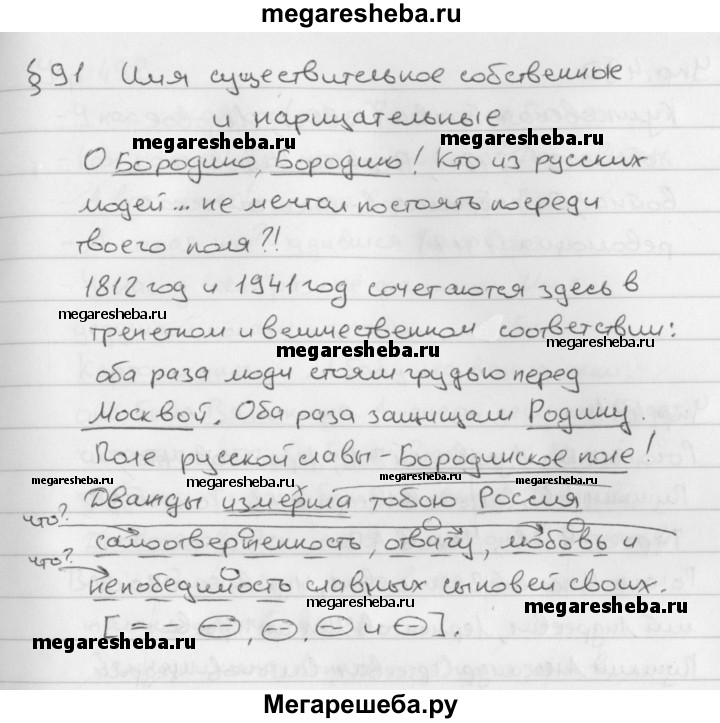 megaresheba.ru
§ 91 Имя существительное собственные
и нарицательные
megaresheba.ru
megaresheba.ru
О Бородино, Бородино! Кто из русских
людей... не мечтал постоять посреди
твоего поля?!
megaresheba.ru
1812 год и 1941 год сочетаются здесь в
megaresheba.ru
megaresheba.ru
трепетном и величественном соответствии:
megaresheba.ru
megaresheba.ru
оба раза люди стояли грудью перед
Москвой. Оба раза защищали Родину.
megaresheba.ru
Поле русской славы - Бородинское поле!
megaresheba.ru
megaresheba.ru
megaresheba.ru
Дважды измерила тобою Россия
что?
самоотверженность, отвагу, любовь и
что?
непобедимость славных сыновей своих.
megaresheba.ru
megaresheba.ru
[ , , и ].
megaresheba.ru
Мегарешеба.ру